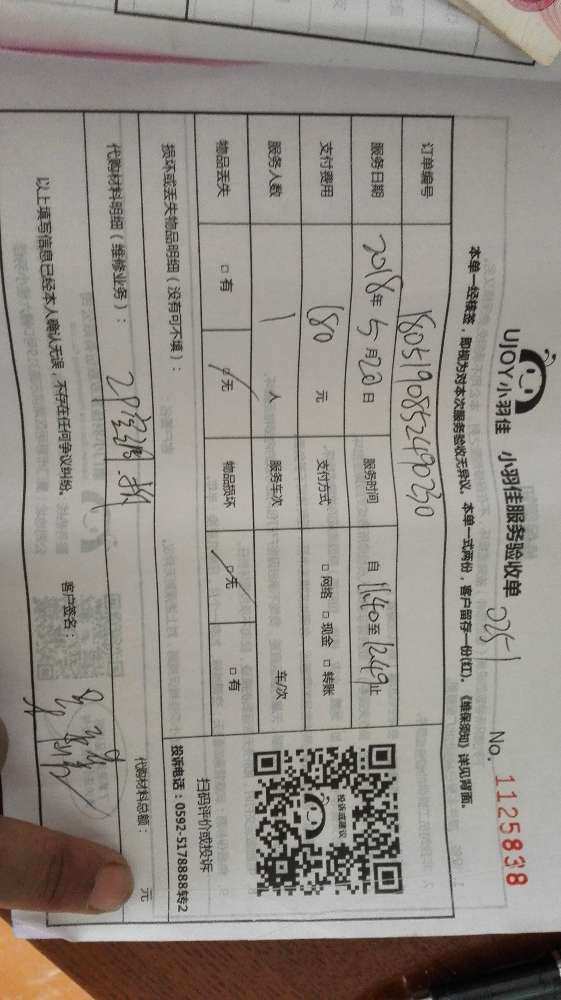 UJOY小羽佳 小羽佳服务验收单 2251 No. 1125838
本单一经接签，即视为对本次服务验收无异议。本单一式两份，客户留存一份(红)。《维保须知》详见背面。
订单编号 1805190852490230
服务日期 2018年5月20日 服务时间 自 11:40 至 12:49 止
支付费用 180 元 支付方式 □ 网络 □ 现金 □ 转账
服务人数 1 人 服务车次 车/次
物品丢失 □ 有 □ 无 物品损坏 □ 无 □ 有
扫码评价或投诉
投诉或建议
损坏或丢失物品明细（没有可不填）：
投诉电话：0592-5178888转2
代购材料明细（维修业务）：
代购材料总额： 元
以上填写信息已经本人确认无误，不存在任何争议纠纷。 客户签名：